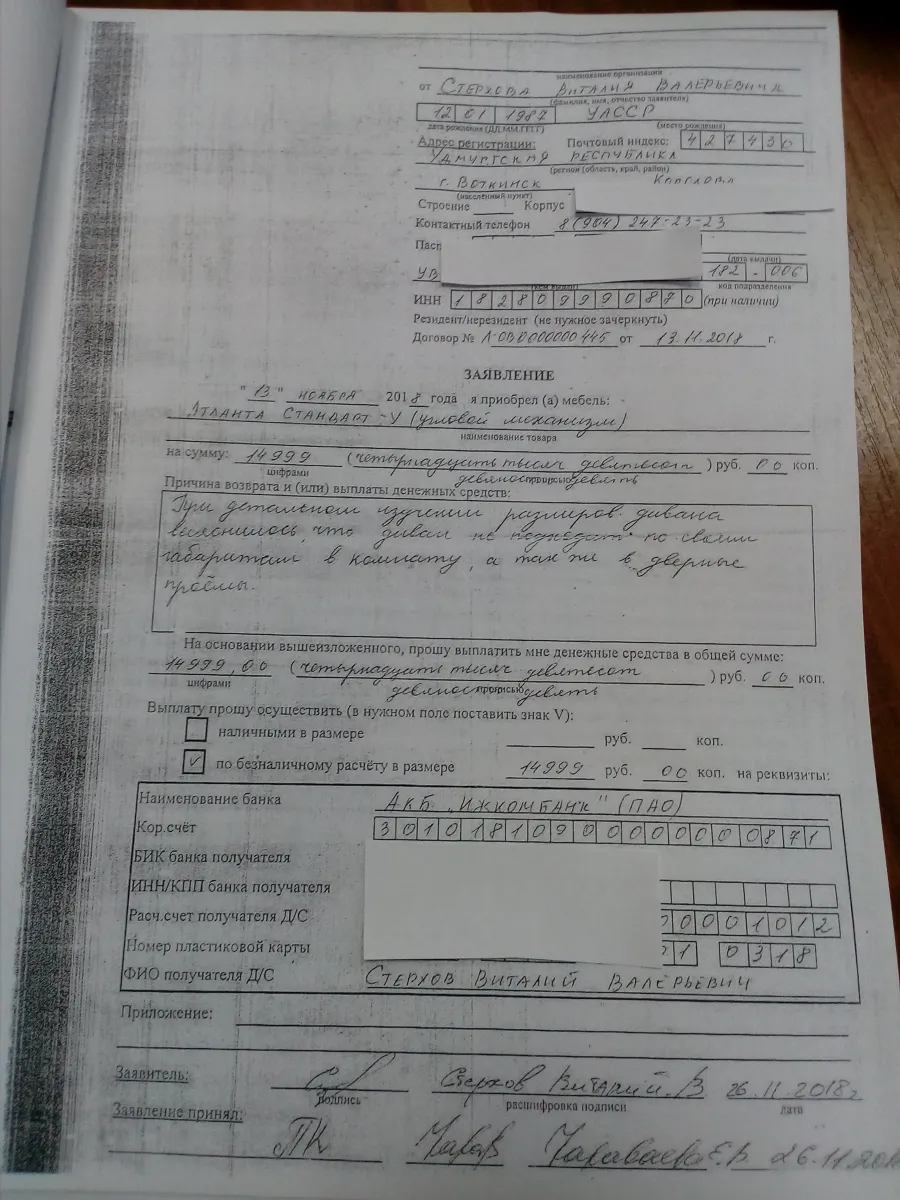 наименование организация
от Стерхова Виталия Валерьевича
(фамилия, имя, отчество заявителя)
12 01 1987 УАССР
дата рождения (ДД.ММ.ГГГГ) (место рождения)
Адрес регистрации: Почтовый индекс: 427430
Удмуртская республика
(регион (область, край, район)
г. Воткинск
(населенный пункт)
Строение Корпус
Контактный телефон 8(904) 247-23-23
Пасп
(дата выдачи)
УВ 182 - 006
код подразделения
ИНН 182809990870 (при наличии)
Резидент/нерезидент (не нужное зачеркнуть)
Договор № Л-ОВ0000000445 от 13.11.2018 г.
ЗАЯВЛЕНИЕ
" 13 " ноября 2018 года я приобрел (а) мебель:
Атланта Стандарт-У (угловой механизм)
наименование товара
на сумму: 14999 (четырнадцать тысяч девятьсот ) руб. 00 коп.
цифрами девяносто прописью девять
Причина возврата и (или) выплаты денежных средств:
При детальном изучении размеров дивана
выяснилось, что диван не подходит по своим
габаритам в комнату, а так же в дверные
проёмы.
На основании вышеизложенного, прошу выплатить мне денежные средства в общей сумме:
14999,00 (четырнадцать тысяч девятьсот ) руб. 00 коп.
цифрами девяносто прописью девять
Выплату прошу осуществить (в нужном поле поставить знак V):
наличными в размере руб. коп.
V по безналичному расчёту в размере 14999 руб. 00 коп. на реквизиты:
Наименование банка АКБ „Ижкомбанк" (ПАО)
Кор.счёт 30101810900000000871
БИК банка получателя
ИНН/КПП банка получателя
Расч.счет получателя Д/С 0001012
Номер пластиковой карты 1 0318
ФИО получателя Д/С Стерхов Виталий Валерьевич
Приложение:
Заявитель: Стерхов Виталий. В 26.11.2018г
подпись расшифровка подписи дата
Заявление принял: ПК Е.В 26.11.201